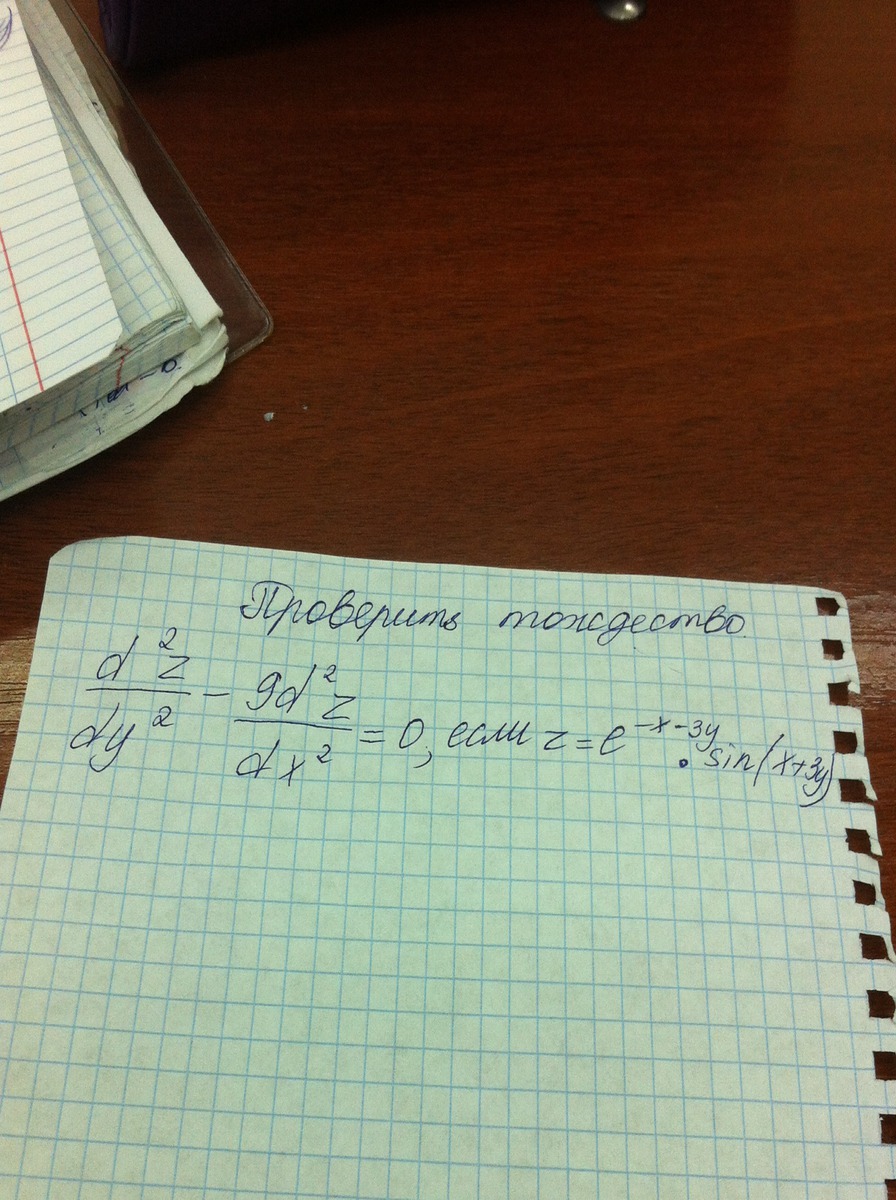 Проверить тождество
d²z/dy² - 9d²z/dx² = 0, если z = e^{-x-3y} · sin(x+3y)